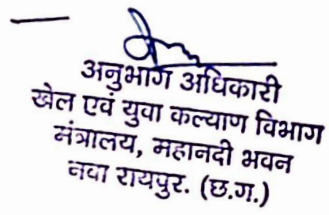 अनुभाग अधिकारी
खेल एवं युवा कल्याण विभाग
मंत्रालय, महानदी भवन
नवा रायपुर. (छ.ग.)